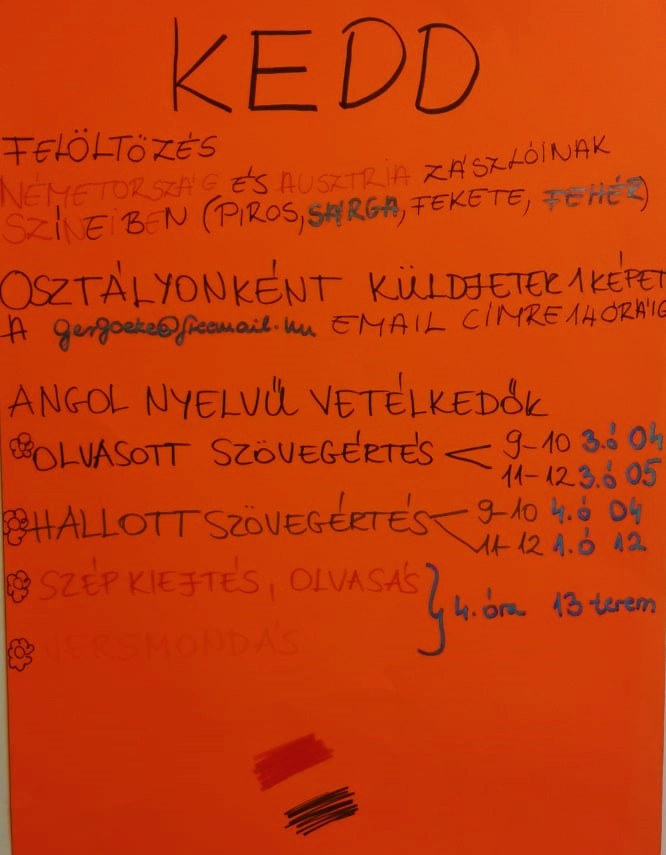 KEDD
FELÖLTÖZÉS
NÉMETORSZÁG ÉS AUSZTRIA ZÁSZLÓINAK
SZÍNEIBEN (PIROS, SÁRGA, FEKETE, FEHÉR)
OSZTÁLYONKÉNT KÜLDJETEK 1 KÉPET
A gergoeke@freemail.hu EMAIL CÍMRE 14 ÓRÁIG
ANGOL NYELVŰ VETÉLKEDŐK
OLVASOTT SZÖVEGÉRTÉS 9-10 3.ó 04
11-12 3.ó 05
HALLOTT SZÖVEGÉRTÉS 9-10 4.ó 04
11-12 1.ó 12
SZÉP KIEJTÉS, OLVASÁS
4. óra 13 terem
VERSMONDÁS